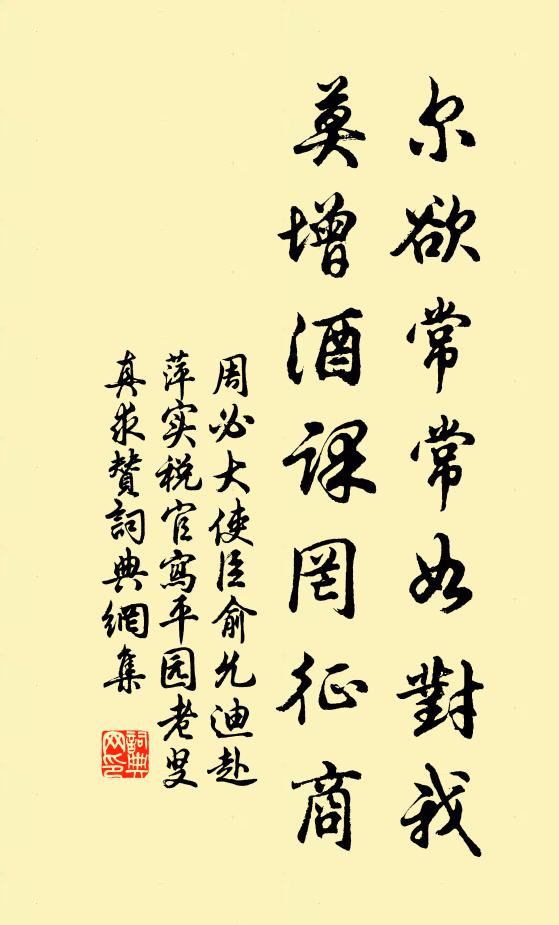 尔欲常常如對我
莫增酒課罔征商
周必大使臣俞允迪赴
萍实税官寫平园老叟
真求贊詞典網集
詞典网印